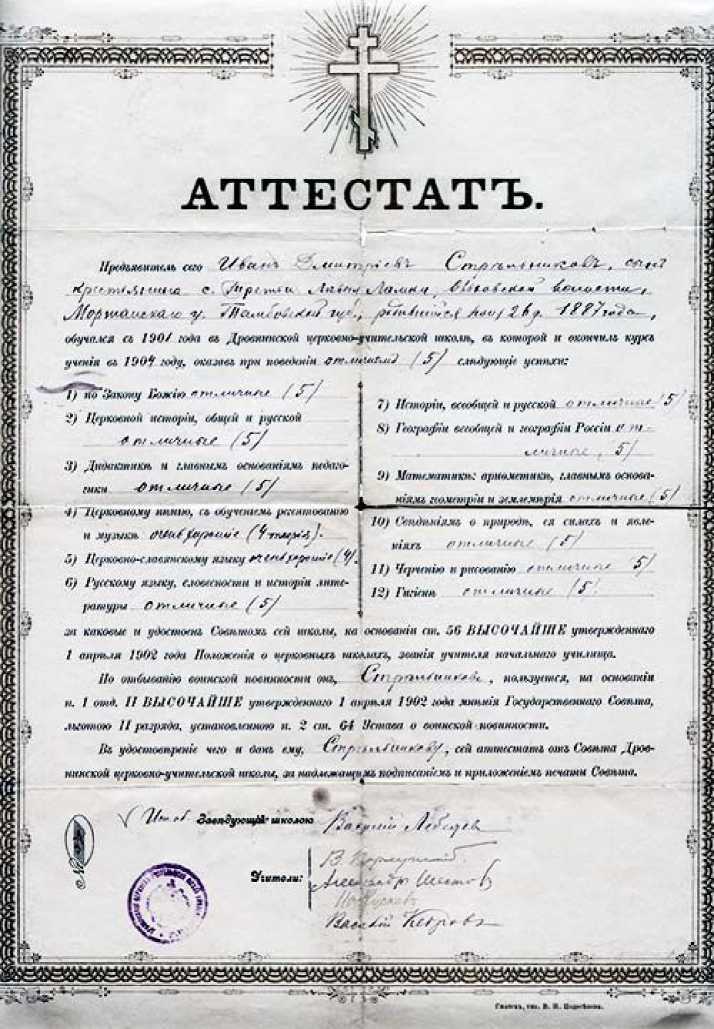 АТТЕСТАТЪ.
Предъявитель сего Иванъ Дмитріевъ Стрѣльниковъ, сынъ
крестьянина с. Третьи Левыя Ламки, волости,
Моршанскаго у. Тамбовской губ., родившійся 26 д. 1887 года,
обучался съ 1901 года въ Дровнинской церковно-учительской школѣ, въ которой и окончилъ курсъ
ученія въ 1904 году, оказавъ при поведеніи отличномъ (5) слѣдующіе успѣхи:
1) по Закону Божію отличные (5)
2) Церковной исторіи, общей и русской
отличные (5)
3) Дидактикѣ и главнымъ основаніямъ педаго-
гики отличные (5)
4) Церковному пѣнію, съ обученіемъ регентованію
и музыкѣ очень хорошіе (4
5) Церковно-славянскому языку очень хорошіе (4).
6) Русскому языку, словесности и исторіи лите-
ратуры отличные (5)
7) Исторіи, всеобщей и русской отличные (5)
8) Географіи всеобщей и географіи Россіи от-
личные, 5)
9) Математикѣ: ариѳметикѣ, главнымъ основа-
ніямъ геометріи и землемѣрія отличные (5)
10) Свѣдѣніямъ о природѣ, ея силахъ и явле-
ніяхъ отличные (5)
11) Черченію и рисованію отличные 5)
12) Гигіенѣ отличные (5)
за каковые и удостоенъ Совѣтомъ сей школы, на основаніи ст. 56 ВЫСОЧАЙШЕ утвержденнаго
1 апрѣля 1902 года Положенія о церковныхъ школахъ, званія учителя начальнаго училища.
По отбыванію воинской повинности онъ, Стрѣльниковъ, пользуется, на основаніи
п. 1 отд. II ВЫСОЧАЙШЕ утвержденнаго 1 апрѣля 1902 года мнѣнія Государственнаго Совѣта,
льготою II разряда, установленною п. 2 ст. 64 Устава о воинской повинности.
Въ удостовѣреніе чего и данъ ему, Стрѣльникову, сей аттестатъ отъ Совѣта Дров-
нинской церковно-учительской школы, за надлежащимъ подписаніемъ и приложеніемъ печати Совѣта.
Исп. об. Завѣдующій школою Василій Лебедевъ
Учители:
Александръ Шестовъ
Василій Кедровъ
№